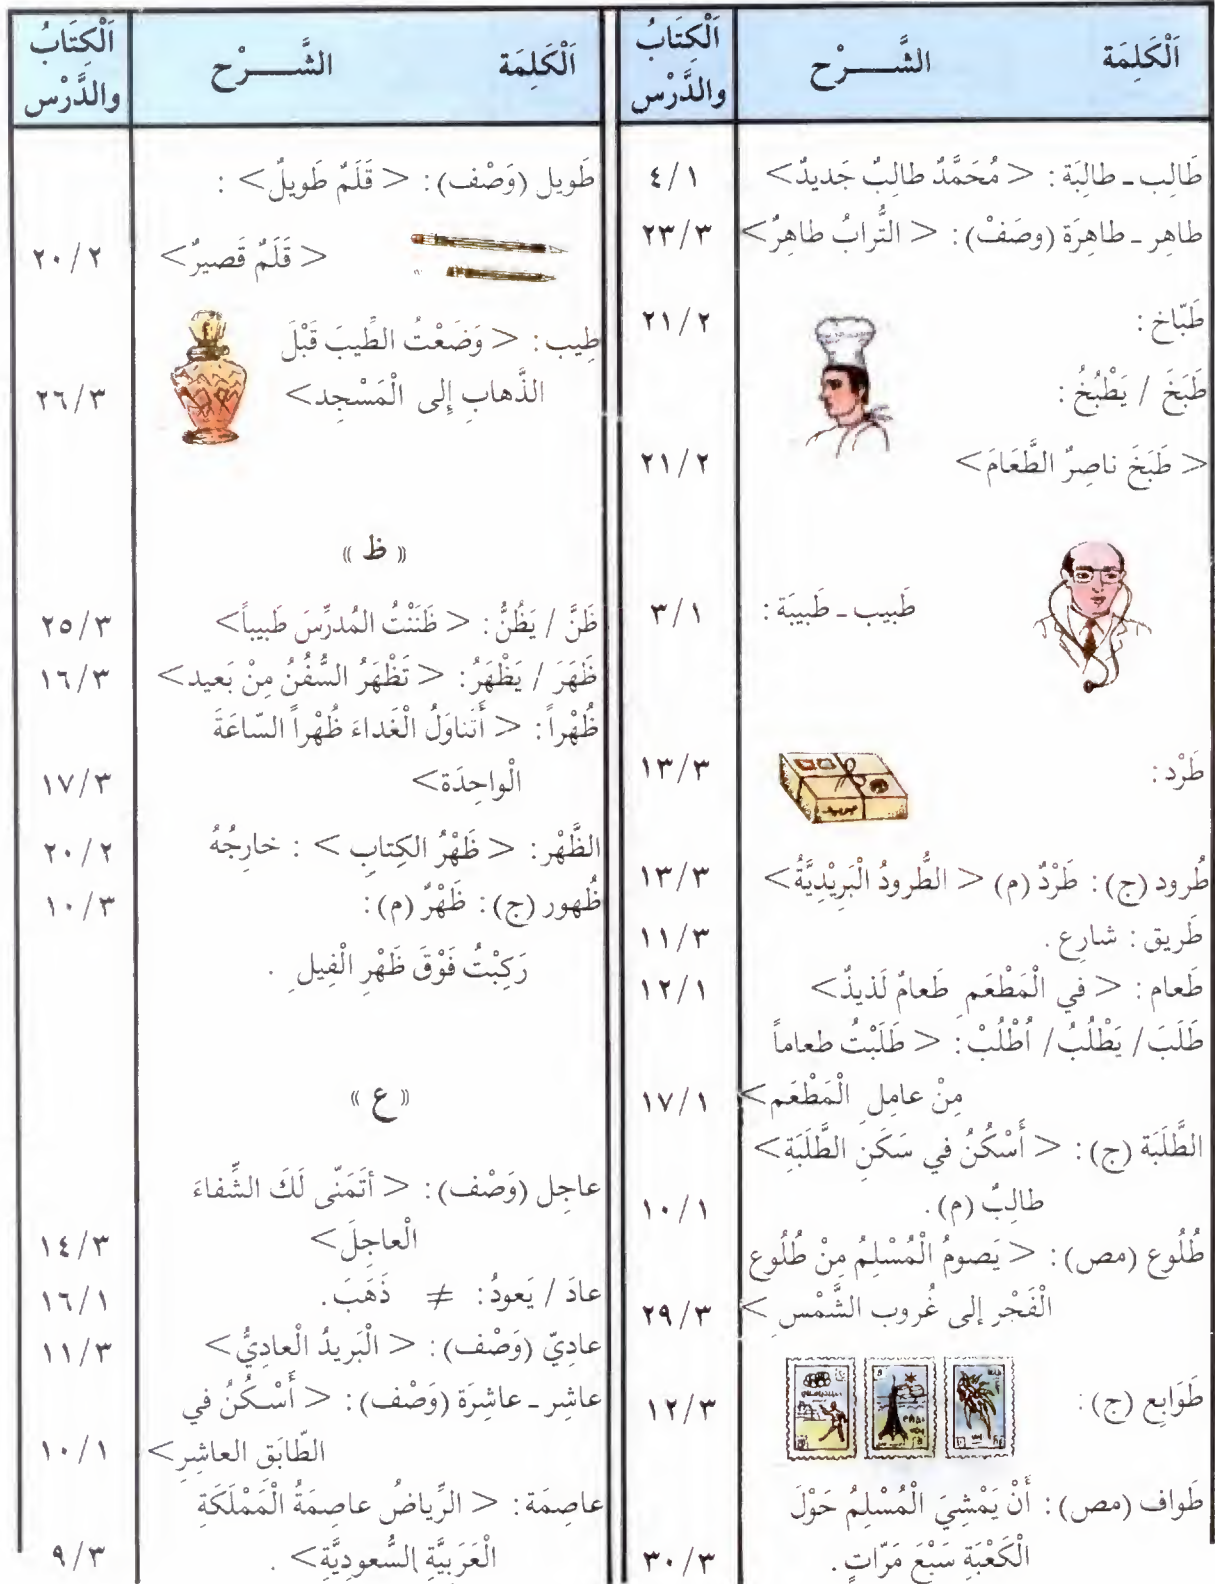 اَلْكَلِمَة الشَّـــــرْح اَلْكِتَابُ والدَّرْس
طَالِب ـ طالِبَة : < مُحَمَّدٌ طالِبٌ جَديدٌ> ٤/١
طاهِر ـ طاهِرَة (وصَفْ) : < التُّرابُ طاهِرٌ> ٢٣/٣
طَبّاخ : ٢١/٢
طَبَخَ / يَطْبُخُ :
< طَبَخَ ناصِرٌ الطَّعَامَ> ٢١/٢
طَبيب ـ طَبيبَة : ٣/١
طَرْد : ١٣/٣
طُرود (ج) : طَرْدٌ (م) < الطُّرودُ الْبَرِيْدِيَّةُ> ١٣/٣
طَريق : شارِع . ١١/٣
طَعام : < في الْمَطْعَمِ طَعامٌ لَذيذٌ> ١٢/١
طَلَبَ / يَطْلُبُ / اُطْلُبْ : < طَلَبْتُ طعاماً
مِنْ عامِلِ الْمَطْعَم> ١٧/١
الطَّلَبَة (ج) : < أَسْكُنُ في سَكَنِ الطَّلَبَةِ>
طالِبٌ (م) . ١٠/١
طُلُوع (مص) : < يَصومُ الْمُسْلِمُ مِنْ طُلُوع
الْفَجْر إلى غُروب الشَّمْسِ > ٢٩/٣
طَوَابِع (ج) : ١٢/٣
طَواف (مص) : أَنْ يَمْشِيَ الْمُسْلِمُ حَوْلَ
الْكَعْبَةِ سَبْعَ مَرّاتٍ . ٣٠/٣
اَلْكَلِمَة الشَّـــــرْح اَلْكِتَابُ والدَّرْس
طَويل (وَصْف) : < قَلَمٌ طَويلٌ> :
< قَلَمٌ قَصيرٌ> ٢٠/٢
طِيب : < وَضَعْتُ الطِّيبَ قَبْلَ
الذَّهابِ إِلى الْمَسْجِد> ٢٦/٣
« ظ »
ظَنَّ / يَظُنُّ : < ظَنَنْتُ المُدرِّسَ طَبيباً> ٢٥/٣
ظَهَرَ / يَظْهَرُ : < تَظْهَرُ السُّفُنُ مِنْ بَعيد> ١٦/٣
ظُهْراً : < أَتَناوَلُ الْغَداءَ ظُهْراً السّاعَةَ
الْواحِدَة> ١٧/٣
الظَّهْر : < ظَهْرُ الكِتابِ > : خارِجُهُ ٢٠/٢
ظُهور (ج) : ظَهْرٌ (م) : ١٠/٣
رَكِبْتُ فَوْقَ ظَهْرِ الْفِيلِ .
« ع »
عاجِل (وَصْف) : < أتَمَنّى لَكَ الشِّفاءَ
الْعاجِلَ> ١٤/٣
عادَ / يَعودُ : ≠ ذَهَبَ . ١٦/١
عادِيّ (وَصْف) : < الْبَريدُ الْعادِيُّ > ١١/٣
عاشِر ـ عاشِرَة (وَصْف) : < أَسْكُنُ في
الطّابَقِ العاشِرِ> ١٠/١
عاصِمَة : < الرِّياضُ عاصِمَةُ الْمَمْلَكَةِ
الْعَرَبيَّةِ السُّعودِيَّةِ> . ٩/٣